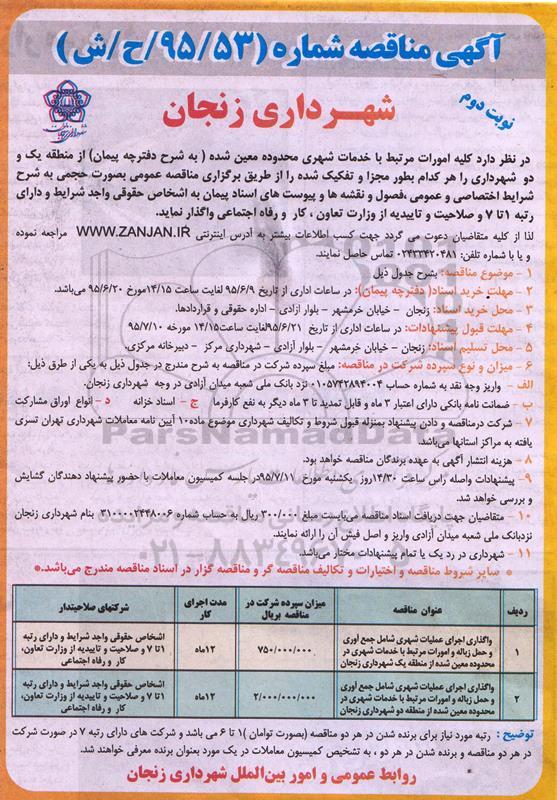 آگهی مناقصه شماره (۹۵/۵۳/ح/ش)
شهرداری زنجان
نوبت دوم
در نظر دارد کلیه امورات مرتبط با خدمات شهری محدوده معین شده ( به شرح دفترچه پیمان) از منطقه یک و
دو شهرداری را هر کدام بطور مجزا و تفکیک شده را از طریق برگزاری مناقصه عمومی بصورت حجمی به شرح
شرایط اختصاصی و عمومی ،فصول و نقشه ها و پیوست های اسناد پیمان به اشخاص حقوقی واجد شرایط و دارای
رتبه ۱تا ۷ و صلاحیت و تاییدیه از وزارت تعاون ، کار و رفاه اجتماعی واگذار نماید.
لذا از کلیه متقاضیان دعوت می گردد جهت کسب اطلاعات بیشتر به آدرس اینترنتی WWW.ZANJAN.IR مراجعه نموده
و یا با شماره تلفن: ۰۲۴۳۳۴۲۰۴۸۱ تماس حاصل نمایند.
۱ - موضوع مناقصه: بشرح جدول ذیل
۲ - مهلت خرید اسناد( دفترچه پیمان): در ساعات اداری از تاریخ ۹۵/۶/۹ لغایت ساعت ۱۴/۱۵مورخ ۹۵/۶/۲۰ می‌باشد.
۳ - محل خرید اسناد: زنجان - خیابان خرمشهر - بلوار آزادی - اداره حقوقی و قراردادها.
۴ - مهلت قبول پیشنهادات: در ساعات اداری از تاریخ ۹۵/۶/۲۱لغایت ساعت۱۴/۱۵ مورخه ۹۵/۷/۱۰
۵ - محل تسلیم اسناد: زنجان - خیابان خرمشهر - بلوار آزادی - شهرداری مرکز - دبیرخانه مرکزی.
۶ - میزان و نوع سپرده شرکت در مناقصه: مبلغ سپرده شرکت در مناقصه به شرح مندرج در جدول ذیل به یکی از طرق ذیل:
الف - واریز وجه نقد به شماره حساب ۰۱۰۵۷۴۲۸۹۴۰۰۴ نزد بانک ملی شعبه میدان آزادی در وجه شهرداری زنجان.
ب - ضمانت نامه بانکی دارای اعتبار ۳ ماه و قابل تمدید تا ۳ ماه دیگر به نفع کارفرما ج - اسناد خزانه د- انواع اوراق مشارکت
۷ - شرکت درمناقصه و دادن پیشنهاد بمنزله قبول شروط و تکالیف شهرداری موضوع ماده۱۰ آیین نامه معاملات شهرداری تهران تسری
یافته به مراکز استانها می‌باشد.
۸ - هزینه انتشار آگهی به عهده برندگان مناقصه خواهد بود.
۹ - پیشنهادات واصله راس ساعت ۱۴/۳۰روز یکشنبه مورخ ۹۵/۷/۱۱در جلسه کمیسیون معاملات با حضور پیشنهاد دهندگان گشایش
و بررسی خواهد شد.
۱۰ - متقاضیان جهت دریافت اسناد مناقصه می‌بایست مبلغ ۳۰۰/۰۰۰ ریال به حساب شماره ۳۱۰۰۰۰۲۴۴۸۰۰۶ بنام شهرداری زنجان
نزدبانک ملی شعبه میدان آزادی واریز و اصل فیش آن را ارائه نمایند.
۱۱ - شهرداری در رد یک یا تمام پیشنهادات مختار می‌باشد.
* سایر شروط مناقصه و اختیارات و تکالیف مناقصه گر و مناقصه گزار در اسناد مناقصه مندرج می‌باشد.*
ردیف عنوان مناقصه میزان سپرده شرکت در مناقصه بریال مدت اجرای کار شرکتهای صلاحیتدار
۱ واگذاری اجرای عملیات شهری شامل جمع آوری و حمل زباله و امورات مرتبط با خدمات شهری در محدوده معین شده از منطقه یک شهرداری زنجان ۷۵۰/۰۰۰/۰۰۰ ۱۲ماه اشخاص حقوقی واجد شرایط و دارای رتبه ۱تا ۷ و صلاحیت و تاییدیه از وزارت تعاون، کار و رفاه اجتماعی
۲ واگذاری اجرای عملیات شهری شامل جمع آوری و حمل زباله و امورات مرتبط با خدمات شهری در محدوده معین شده از منطقه دو شهرداری زنجان ۲/۰۰۰/۰۰۰/۰۰۰ ۱۲ماه اشخاص حقوقی واجد شرایط و دارای رتبه ۱تا ۷ و صلاحیت و تاییدیه از وزارت تعاون، کار و رفاه اجتماعی
توضیح : رتبه مورد نیاز برای برنده شدن در هر دو مناقصه (بصورت توامان )۱ تا ۶ می باشد و شرکت های دارای رتبه ۷ در صورت شرکت
در هر دو مناقصه و برنده شدن در هر دو ، به تشخیص کمیسیون معاملات در یک مورد بعنوان برنده معرفی خواهند شد.
روابط عمومی و امور بین‌الملل شهرداری زنجان